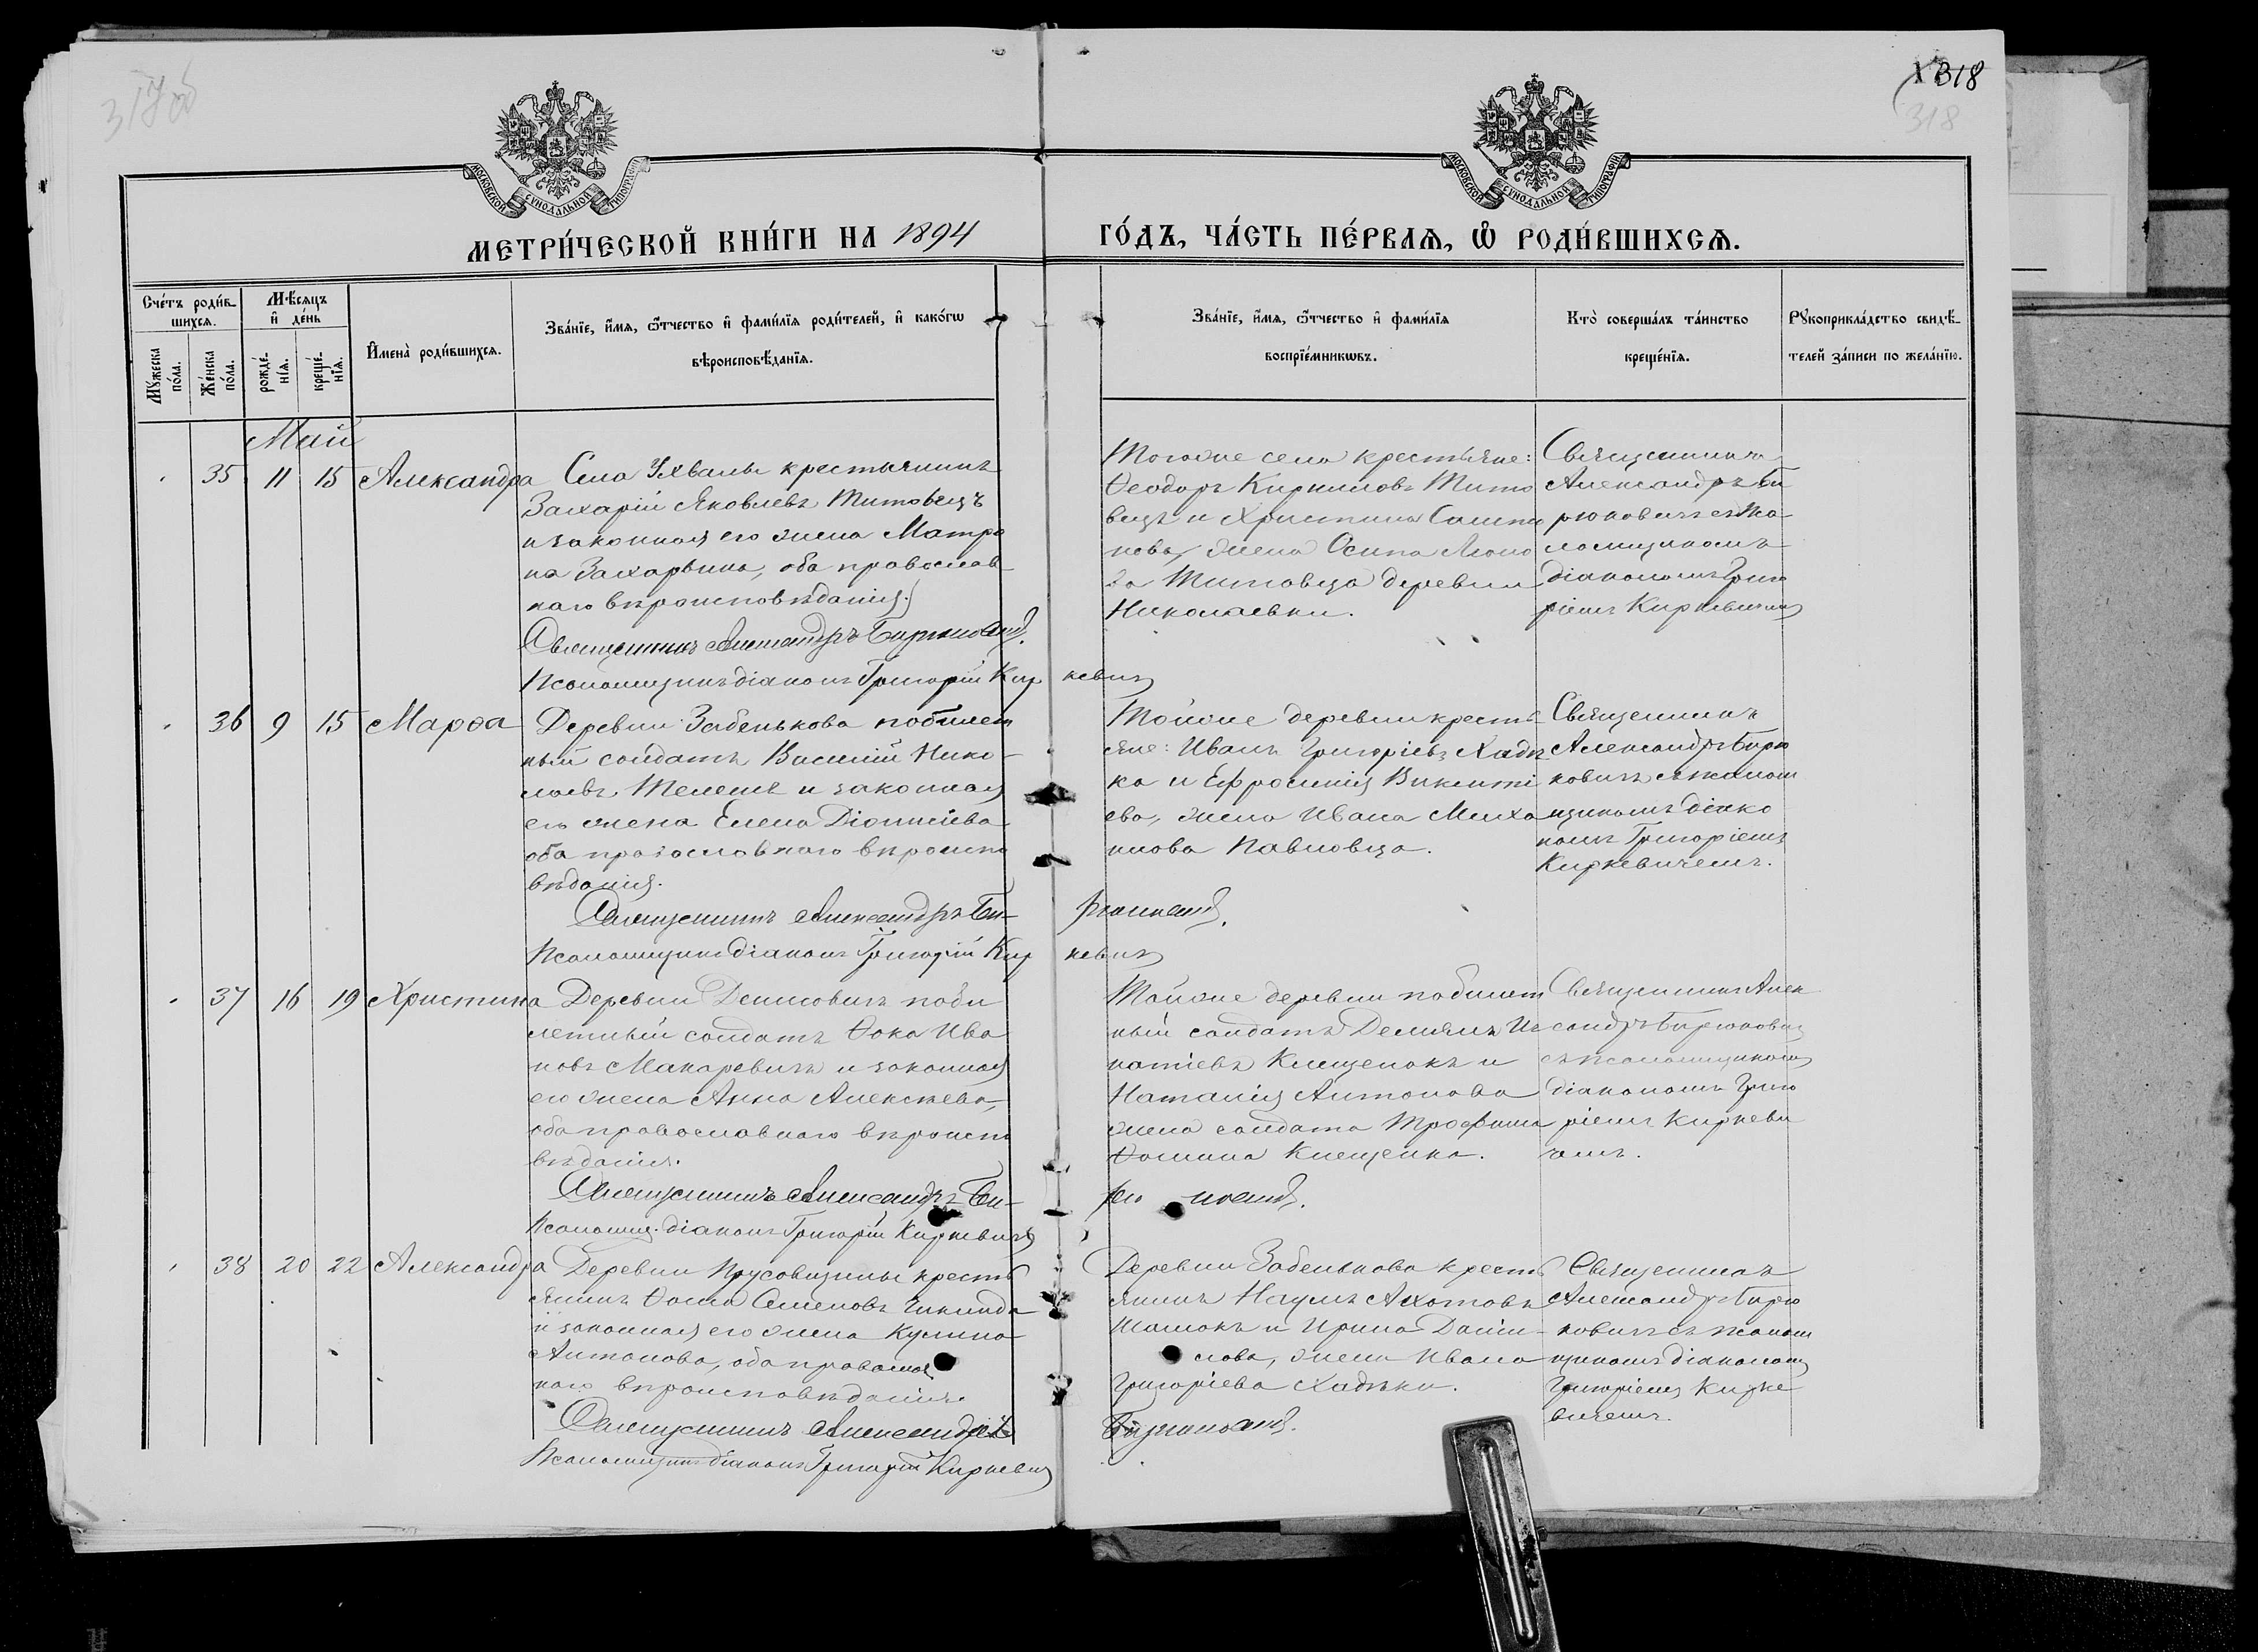 317об
318
318
МОСКОВСКОЙ СѴНОДАЛЬНОЙ ТИПОГРАФІИ
МОСКОВСКОЙ СѴНОДАЛЬНОЙ ТИПОГРАФІИ
МЕТРИ́ЧЕСКОЙ КНИ́ГИ НА 1894
ГО́ДЪ, ЧА́СТЬ ПЕ́РВАѦ, Ѽ РОДИ́ВШИХСѦ.
Сче́тъ роди́в-
шихсѧ.
Мꙋ́жеска по́ла.
Же́нска по́ла.
Мѣ́сѧцъ
и҆ де́нь
рожде́-
нїѧ.
креще́-
нїѧ.
И҆мена̀ роди́вшихсѧ.
Зва́нїе, и҆́мѧ, ѻ҆́тчество и҆ фами́лїѧ роди́телей, и҆ како́гѡ
вѣроисповѣ́данїѧ.
Зва́нїе, и҆́мѧ, ѻ҆́тчество и҆ фами́лїѧ
воспрїе́мникѡвъ.
Кто̀ соверша́лъ та́инство
креще́нїѧ.
Рꙋкоприкла́дство свидѣ́-
телей за́писи по жела́нїю.
Май
35 11 15 Александра
Села Ухвалы крестьянинъ
Захарій Яковлевъ Титовецъ
и законная его жена Матро
на Захарьина, оба православ-
наго вѣроисповѣданія.
Священникъ Александръ Бирюковичъ.
Псаломщикъ діаконъ Григорій Кир
кевичъ
Тогоже села крестьяне:
Ѳеодоръ Кирилловъ Тито
вецъ и Христина
нова, жена Осипа
Титовца деревни
Николаевки.
Священникъ
Александръ Би
рюковичъ съ пса
ломщикомъ
діакономъ Григо
ріемъ Киркевичемъ
36 9 15 Марѳа
Деревни Забенькова побилет
ный солдатъ Василій Нико-
лаевъ Телешъ и законная
его жена Елена Діонисіева
оба православнаго вѣроиспо
вѣданія.
Священникъ Александръ Би-
рюковичъ.
Псаломщикъ діаконъ Григорій Кир
кевичъ
Тойже деревни кресть
яне: Иванъ Григорьевъ Хадъ
ка и Ефросинія Викенті
ева, жена Ивана Миха
илова Павловца.
Священникъ
Александръ Бирю
ковичъ съ псалом
щикомъ діако
номъ Григоріемъ
Киркевичемъ.
37 16 19 Христина
Деревни Денисовичъ поби
летный солдатъ Ѳока Ива
новъ Макаревичъ и законная
его жена Анна Алексѣева,
оба православнаго вѣроиспо
вѣданія.
Священникъ Александръ Би-
рюковичъ.
Псаломщ. діаконъ Григорій Киркевичъ
Тойже деревни побилет
ный солдатъ Демьянъ Иг
натіевъ Клещенокъ и
Наталія Антонова
жена солдата Трофима
Ѳомина Клещенка.
Священникъ Алек
сандръ Бирюковичъ
съ псаломщикомъ
діакономъ Григо
ріемъ Киркеви
чемъ.
38 20 22 Александра
Деревни Прусовщины кресть
янинъ Ѳома Семеновъ
и законная его жена Кулина
Антонова, оба православ
наго вѣроисповѣданія.
Священникъ Александръ
Бирюковичъ.
Псаломщикъ діаконъ Григорій Киркевичъ
Деревни Забенькова кресть
янинъ Наумъ
и Ирина Дани-
лова, жена Ивана
Григоріева Хадьки.
Священникъ
Александръ Бирю
ковичъ съ псалом
щикомъ діакономъ
Григоріемъ Кирке
вичемъ.